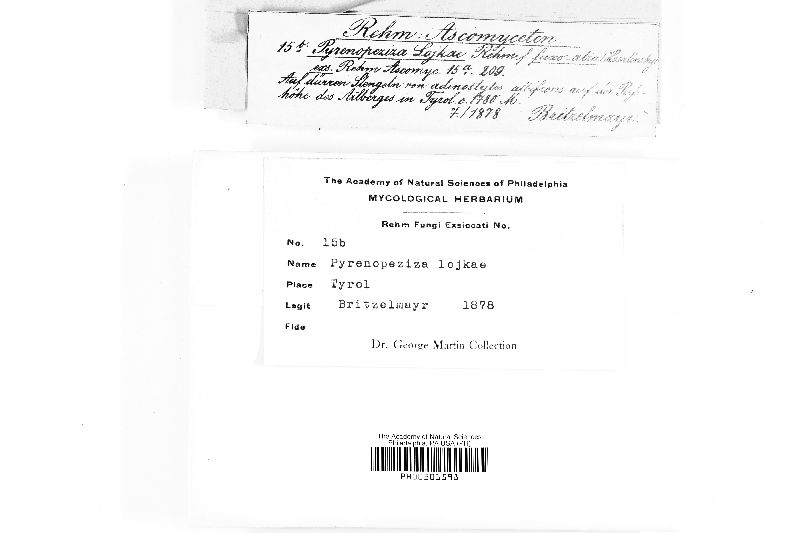 Rehm: Ascomyceten.
15b. Pyrenopeziza Lojkae Rehm f. fusco-atra
exs. Rehm Ascomyc. 15a. 209.
Auf dürren Stengeln von adenostyles albifrons auf der
höhe des Arlberges in Tyrol c. 1780 M.
7/1878 Britzelmayr.
The Academy of Natural Sciences of Philadelphia
MYCOLOGICAL HERBARIUM
Rehm Fungi Exsiccati No.
No. 15b
Name Pyrenopeziza lojkae
Place Tyrol
Legit Britzelmayr 1878
Fide
Dr. George Martin Collection
The Academy of Natural Sciences
Philadelphia, PA USA (PH)